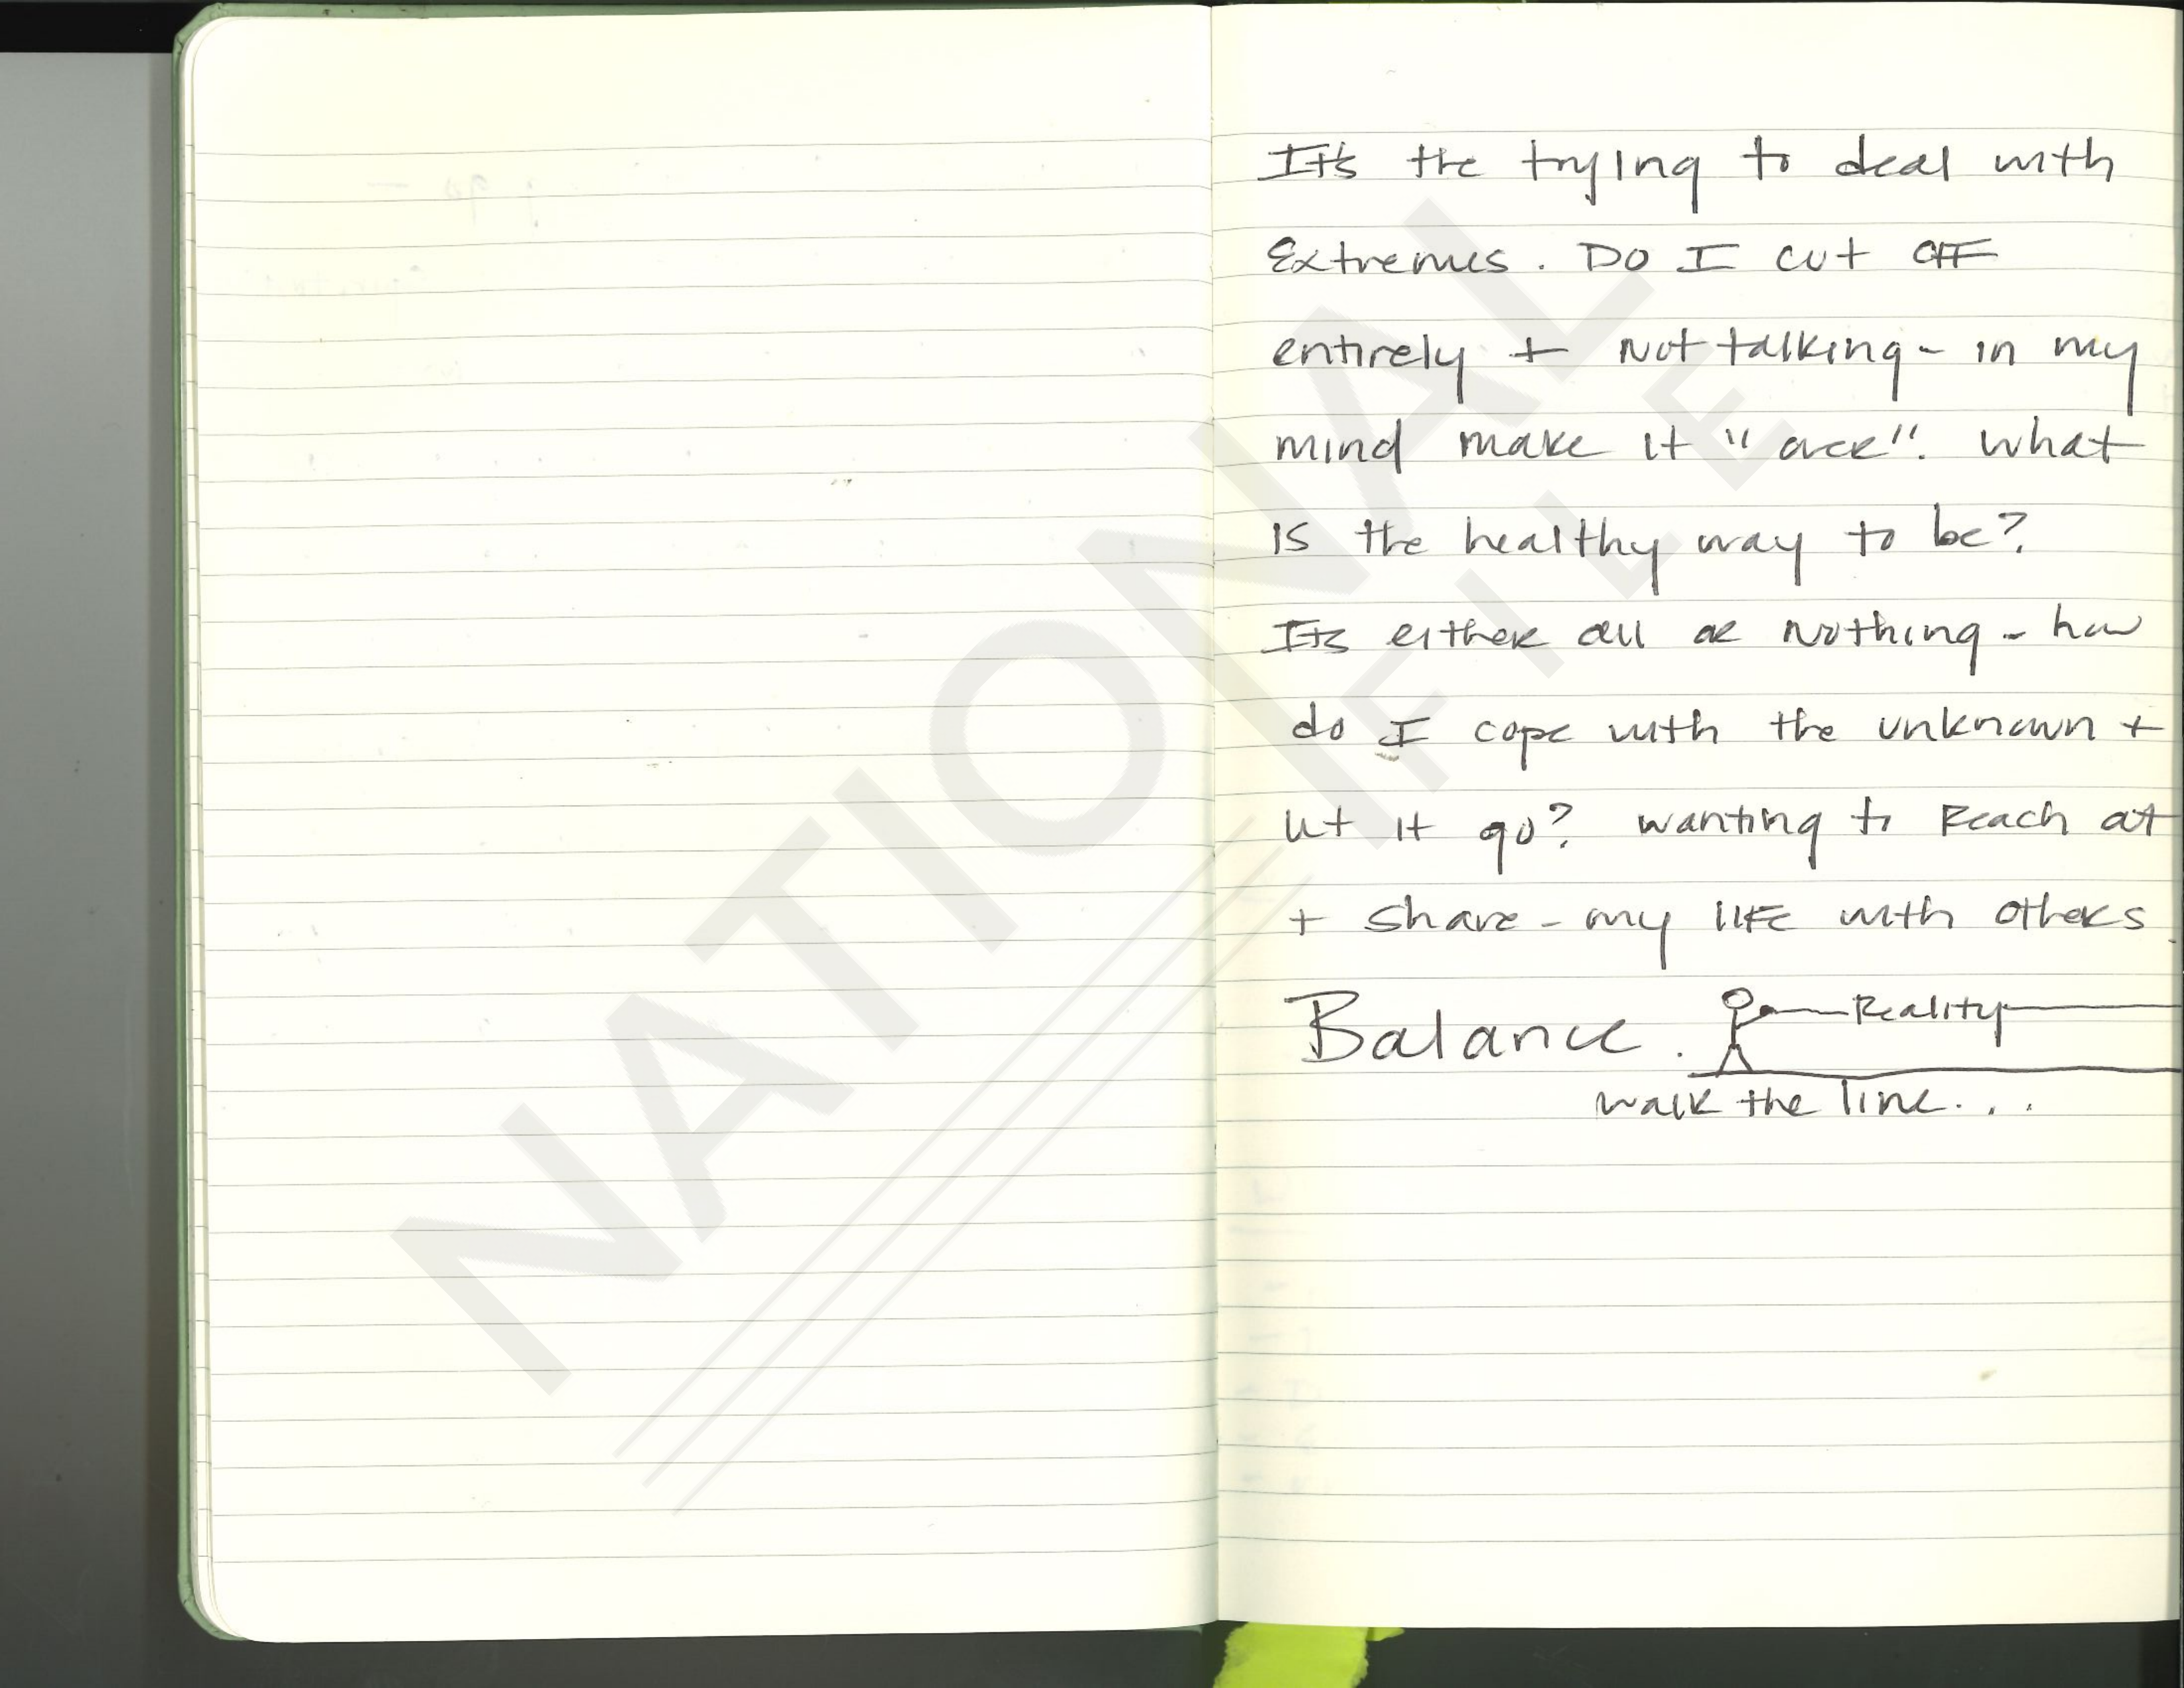 It's the trying to deal with
Extremes. Do I cut off
entirely + Not talking - in my
mind make it "over". What
is the healthy way to be?
Its either all or nothing - how
do I cope with the unknown +
let it go? wanting to Reach out
+ share - my life with others.
Balance. Reality
walk the line...
NATIONAL
FILE